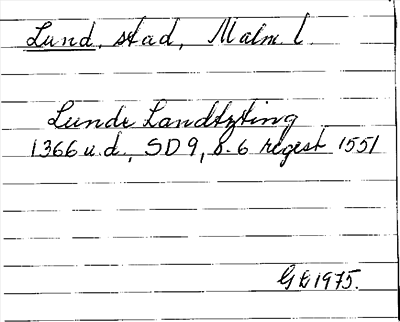 Lund, stad, Malm. l.
Lunde Landtzting
1366 u.d., SD 9, s. 6 regest 1551
G L 1975.